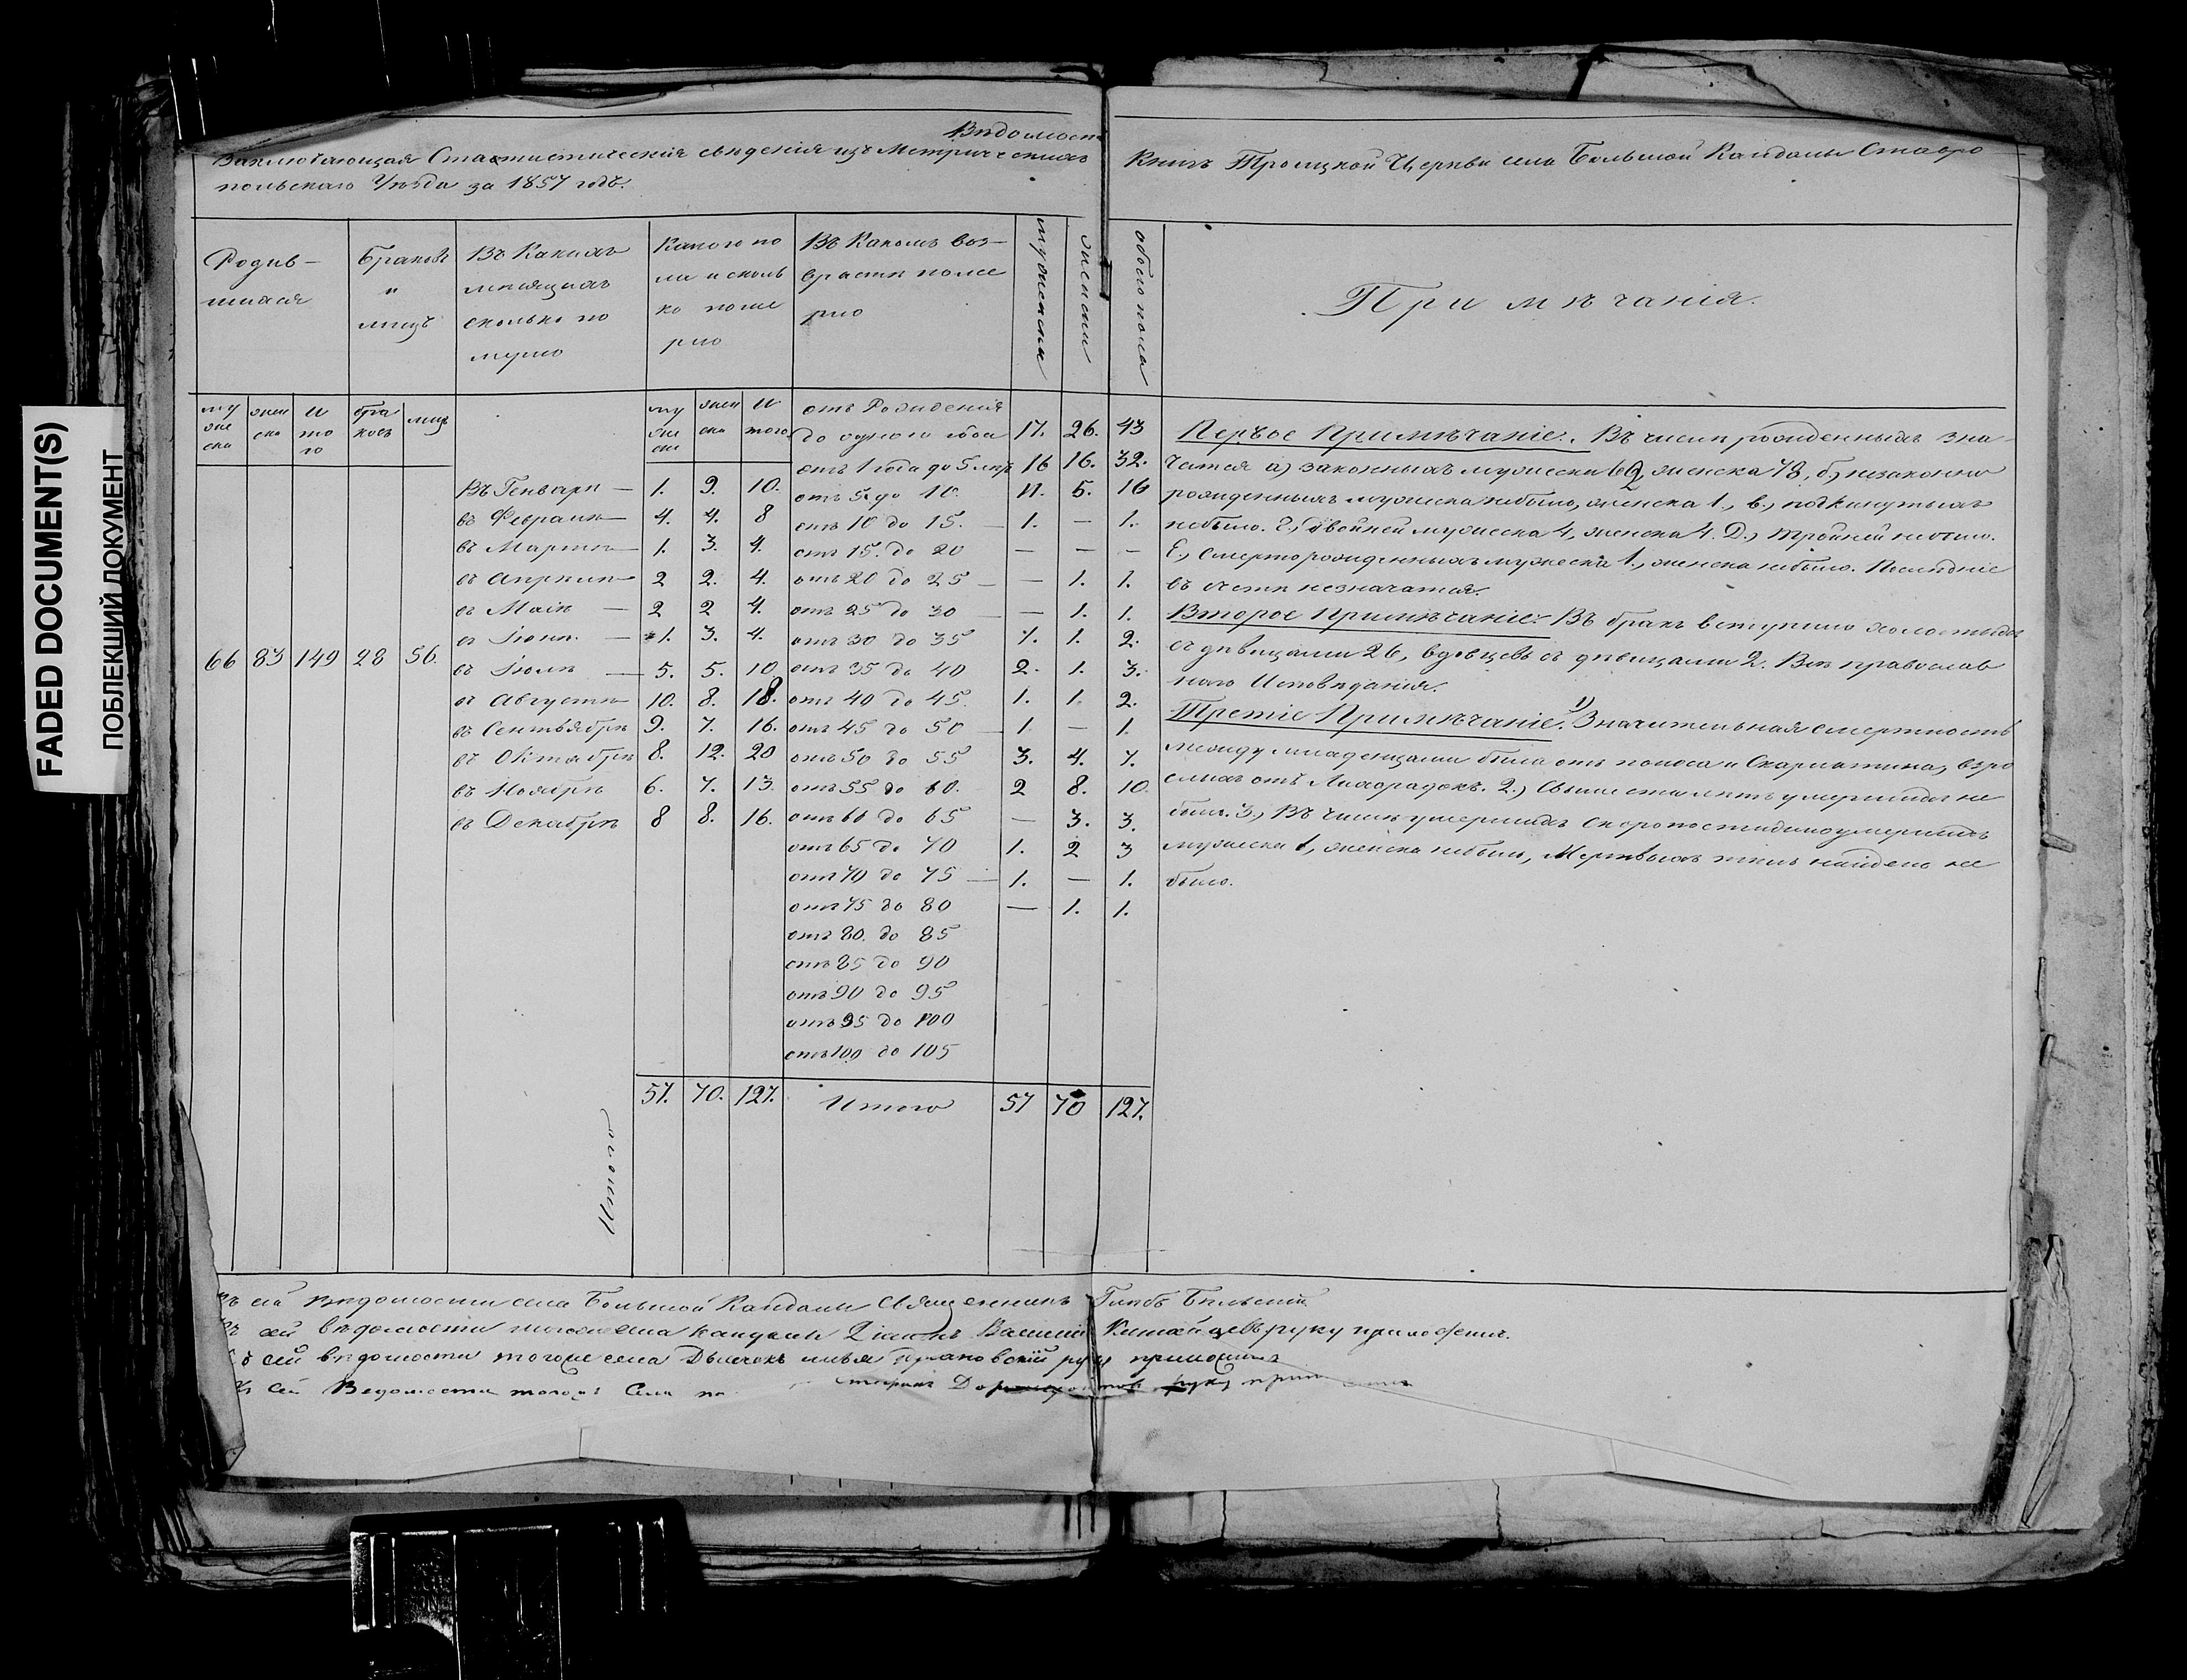 FADED DOCUMENT(S)
ПОБЛЕКШИЙ ДОКУМЕНТ
Вѣдомость
Заключающая Статистическія свѣденія изъ Метрическихъ Книгъ Троицкой Церкви села Большой Кандалы Ставро
польскаго Уѣзда за 1857 годъ.
Родив-
шихся
Браковъ
и
лицъ
Въ Какихъ
мѣсяцахъ
сколько по
мерло
Какого по
ла и сколь
ко поме
рло
Въ Какомъ воз-
растѣ поме
рло
мужески
женски
обоего пола
Примѣчанія.
му
же
ска
жен
ска
и
то
го
бра
ковъ
лицъ
му
же
ск
жен
ска
и
того
66 83 149 28 56.
Въ Генварѣ — 1. 9. 10.
въ Февралѣ — 4. 4. 8
въ Мартѣ — 1. 3. 4.
въ Апрѣлѣ — 2 2. 4.
въ Маіѣ — 2 2 4.
въ Іюнѣ. — 1. 3. 4.
въ Іюлѣ — 5. 5. 10.
въ Августѣ — 10. 8. 18.
въ Сентябрѣ 9. 7. 16.
въ Октябрѣ 8. 12. 20
въ Ноябрѣ 6. 7. 13.
въ Декабрѣ 8 8. 16.
Итого
57. 70. 127.
отъ Рожденія
до одного года 17. 26. 43
отъ 1 года до 5 лѣтъ 16 16. 32.
отъ 5. до 10. 11. 5. 16
отъ 10 до 15. — 1. — 1.
отъ 15. до 20 — — —
отъ 20 до 25 — — 1. 1.
отъ 25 до 30 — 1. 1.
отъ 30 до 35 1. 1. 2.
отъ 35 до 40 2. 1. 3.
отъ 40 до 45. 1. 1. 2.
отъ 45 до 50 — 1. — 1.
отъ 50 до 55 3. 4. 7.
отъ 55 до 60. 2 8. 10.
отъ 60 до 65 — 3. 3.
отъ 65 до 70 1. 2 3
отъ 70 до 75 — 1. — 1.
отъ 75 до 80 — 1. 1.
отъ 80. до 85
отъ 85 до 90
отъ 90 до 95
отъ 95 до 100
отъ 100 до 105
Итого 57 70 127.
Первое Примѣчаніе. Въ числѣ рожденныхъ зна-
чатся а) законныхъ мужеска женска б) незаконно
рожденныхъ мужеска небыло, женска 1., в.) подкинутыхъ
небыло. Г.) двойней мужеска 4, женска 4. Д.) тройней небыло.
Е.) Смерторожденныхъ мужеска 1., женска небыло. Послѣдніе
въ счетѣ незначатся.
Второе Примѣчаніе. Въ бракъ вступило холостыхъ
съ дѣвицами 26, вдовцевъ съ дѣвицами 2. Всѣ православ
наго Исповѣданія.
Третіе Примѣчаніе. 1) Значительная смертность
между младенцами была отъ поноса и Скарлатина, взро
слыхъ отъ Лихорадокъ. 2.) Свыше ста лѣтъ умершихъ не
было. 3.) Въ числѣ умершихъ скоропостижно умершихъ
мужеска 1, женска небыло, Мертвыхъ тѣлъ найдено не
было.
сей вѣдомости села Большой Кандалы Священникъ Глѣбъ Бѣльскій
сей вѣдомости тогожъ села Кандалы Діаконъ Василій руку приложилъ.
сей вѣдомости тогоже села Дьячекъ руку приложилъ
сей Ведомости тогожъ Села руку